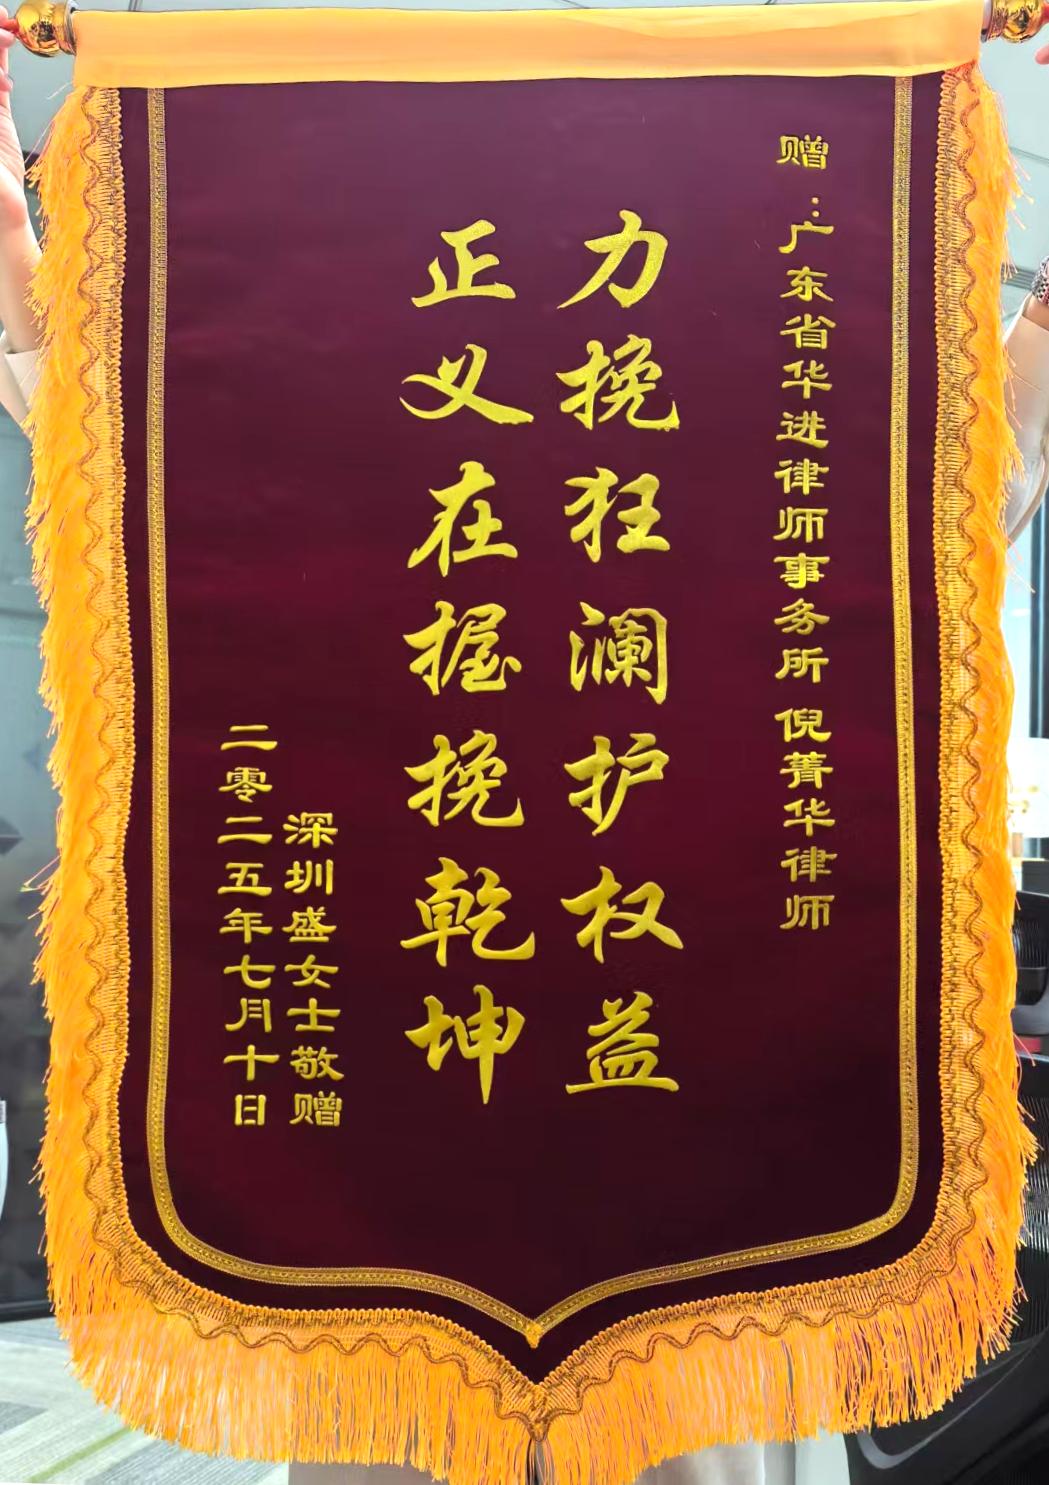 赠:广东省华进律师事务所 倪菁华律师
力挽狂澜护权益
正义在握挽乾坤
深圳盛女士敬赠
二零二五年七月十日